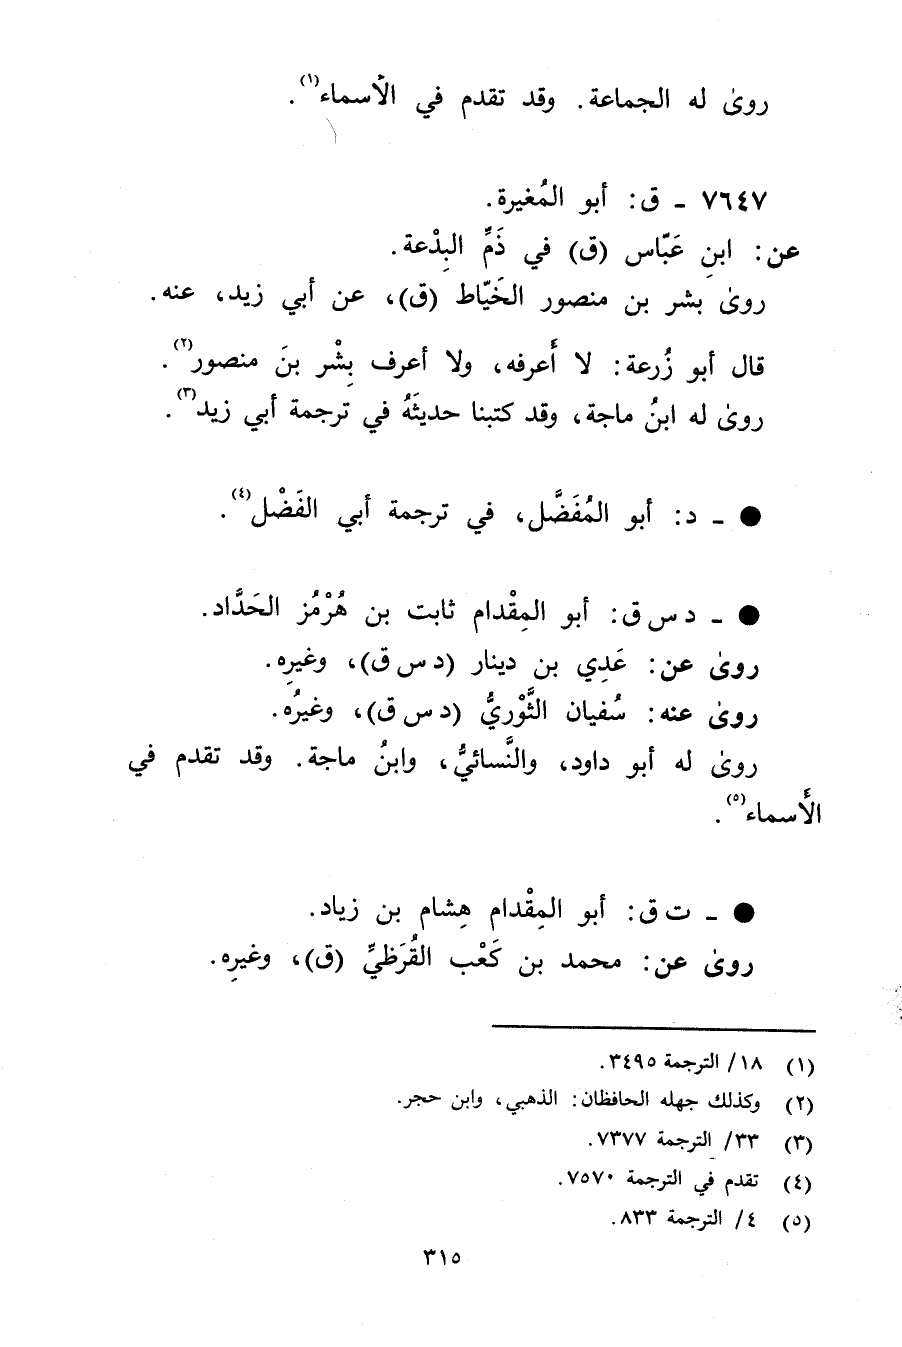 روىٰ له الجماعة. وقد تقدم في الأسماء(١).
٧٦٤٧ - ق: أبو المُغيرة.
عن: ابنِ عَبّاس (ق) في ذَمِّ البِدْعة.
روىٰ بشر بن منصور الخَيّاط (ق)، عن أبي زيد، عنه.
قال أبو زُرعة: لا أَعرفه، ولا أعرف بِشْر بنَ منصور(٢).
روىٰ له ابنُ ماجة، وقد كتبنا حديثَهُ في ترجمة أبي زيد(٣).
● - د: أبو المُفَضَّل، في ترجمة أبي الفَضْل(٤).
● - د س ق: أبو المِقْدام ثابت بن هُرْمُز الحَدَّاد.
روىٰ عن: عَدِي بن دينار (د س ق)، وغيرِه.
روىٰ عنه: سُفيان الثَّوْريُّ (د س ق)، وغيرُه.
روىٰ له أبو داود، والنَّسائيُّ، وابنُ ماجة. وقد تقدم في
الأَسماء(٥).
● - ت ق: أبو المِقْدام هِشام بن زياد.
روىٰ عن: محمد بن كَعْب القُرَظيِّ (ق)، وغيرِه.
(١) ١٨/ الترجمة ٣٤٩٥.
(٢) وكذلك جهله الحافظان: الذهبي، وابن حجر.
(٣) ٣٣/ الترجمة ٧٣٧٧.
(٤) تقدم في الترجمة ٧٥٧٠.
(٥) ٤/ الترجمة ٨٣٣.
٣١٥